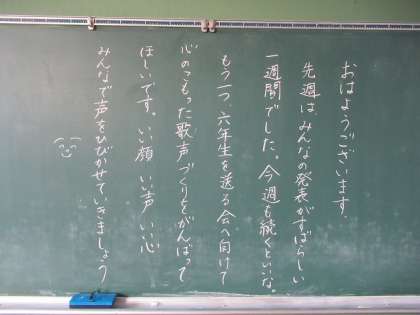 おはようございます。
先週は、みんなの発表がすばらしい
一週間でした。今週も続くといいな。
もう一つ、六年生を送る会へ向けて
心のこもった歌声づくりをがんばって
ほしいです。いい顔 いい声 いい心
みんなで声をひびかせていきましょう